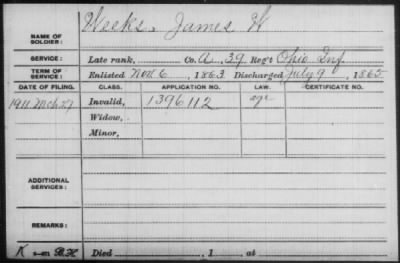 Weeks, James W
NAME OF SOLDIER:
SERVICE: Late rank, Co. A, 39 Reg't Ohio Inf
TERM OF SERVICE: Enlisted Nov. 6, 1863 Discharged July 9, 1865
DATE OF FILING. CLASS. APPLICATION NO. LAW. CERTIFICATE NO.
1911 Mch 27 Invalid, 1396112 age
Widow,
Minor,
ADDITIONAL SERVICES:
REMARKS:
K Died , 1 at